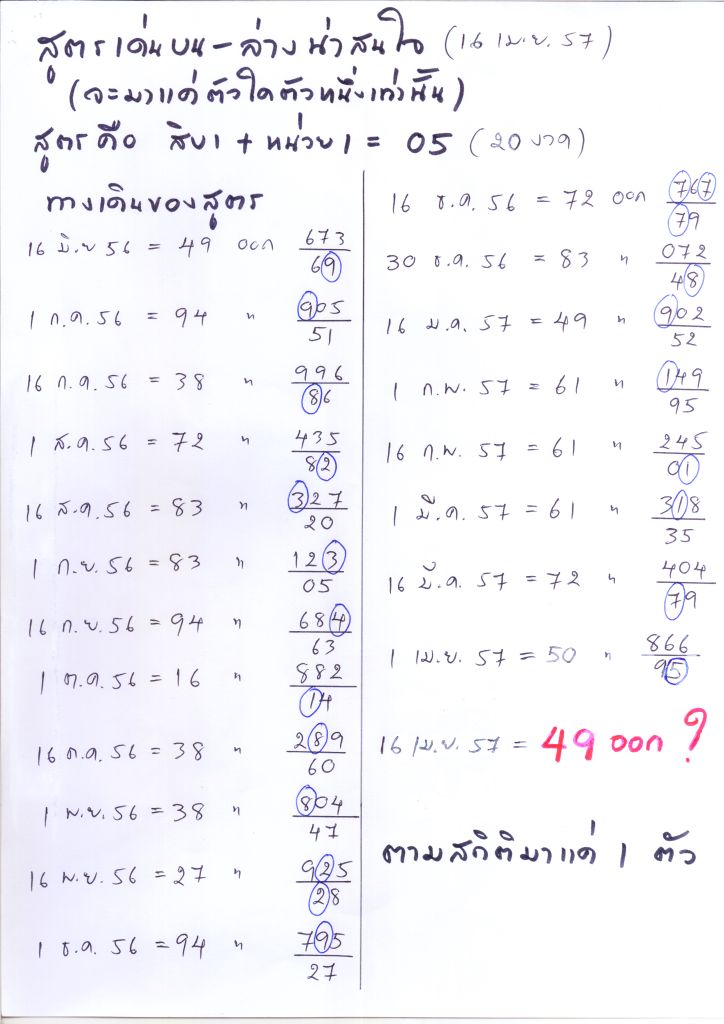 สูตรเด่นบน-ล่างน่าสนใจ (16 เม.ย. 57)
(จะมาแค่ตัวใดตัวหนึ่งเท่านั้น)
สูตรคือ สิบ1 + หน่วย1 = 05 (20 งวด)
ทางเดินของสูตร
16 มิ.ย 56 = 49 ออก 673
69
1 ก.ค. 56 = 94 " 905
51
16 ก.ค. 56 = 38 " 996
86
1 ส.ค. 56 = 72 " 435
82
16 ส.ค. 56 = 83 " 327
20
1 ก.ย. 56 = 83 " 123
05
16 ก.ย. 56 = 94 " 684
63
1 ต.ค. 56 = 16 " 882
14
16 ต.ค. 56 = 38 " 289
60
1 พ.ย. 56 = 38 " 804
47
16 พ.ย. 56 = 27 " 925
28
1 ธ.ค. 56 = 94 " 795
27
16 ธ.ค. 56 = 72 ออก 767
79
30 ธ.ค. 56 = 83 " 072
48
16 ม.ค. 57 = 49 " 902
52
1 ก.พ. 57 = 61 " 149
95
16 ก.พ. 57 = 61 " 245
01
1 มี.ค. 57 = 61 " 318
35
16 มี.ค. 57 = 72 " 404
79
1 เม.ย. 57 = 50 " 866
95
16 เม.ย. 57 = 49 ออก ?
ตามสถิติมาแค่ 1 ตัว